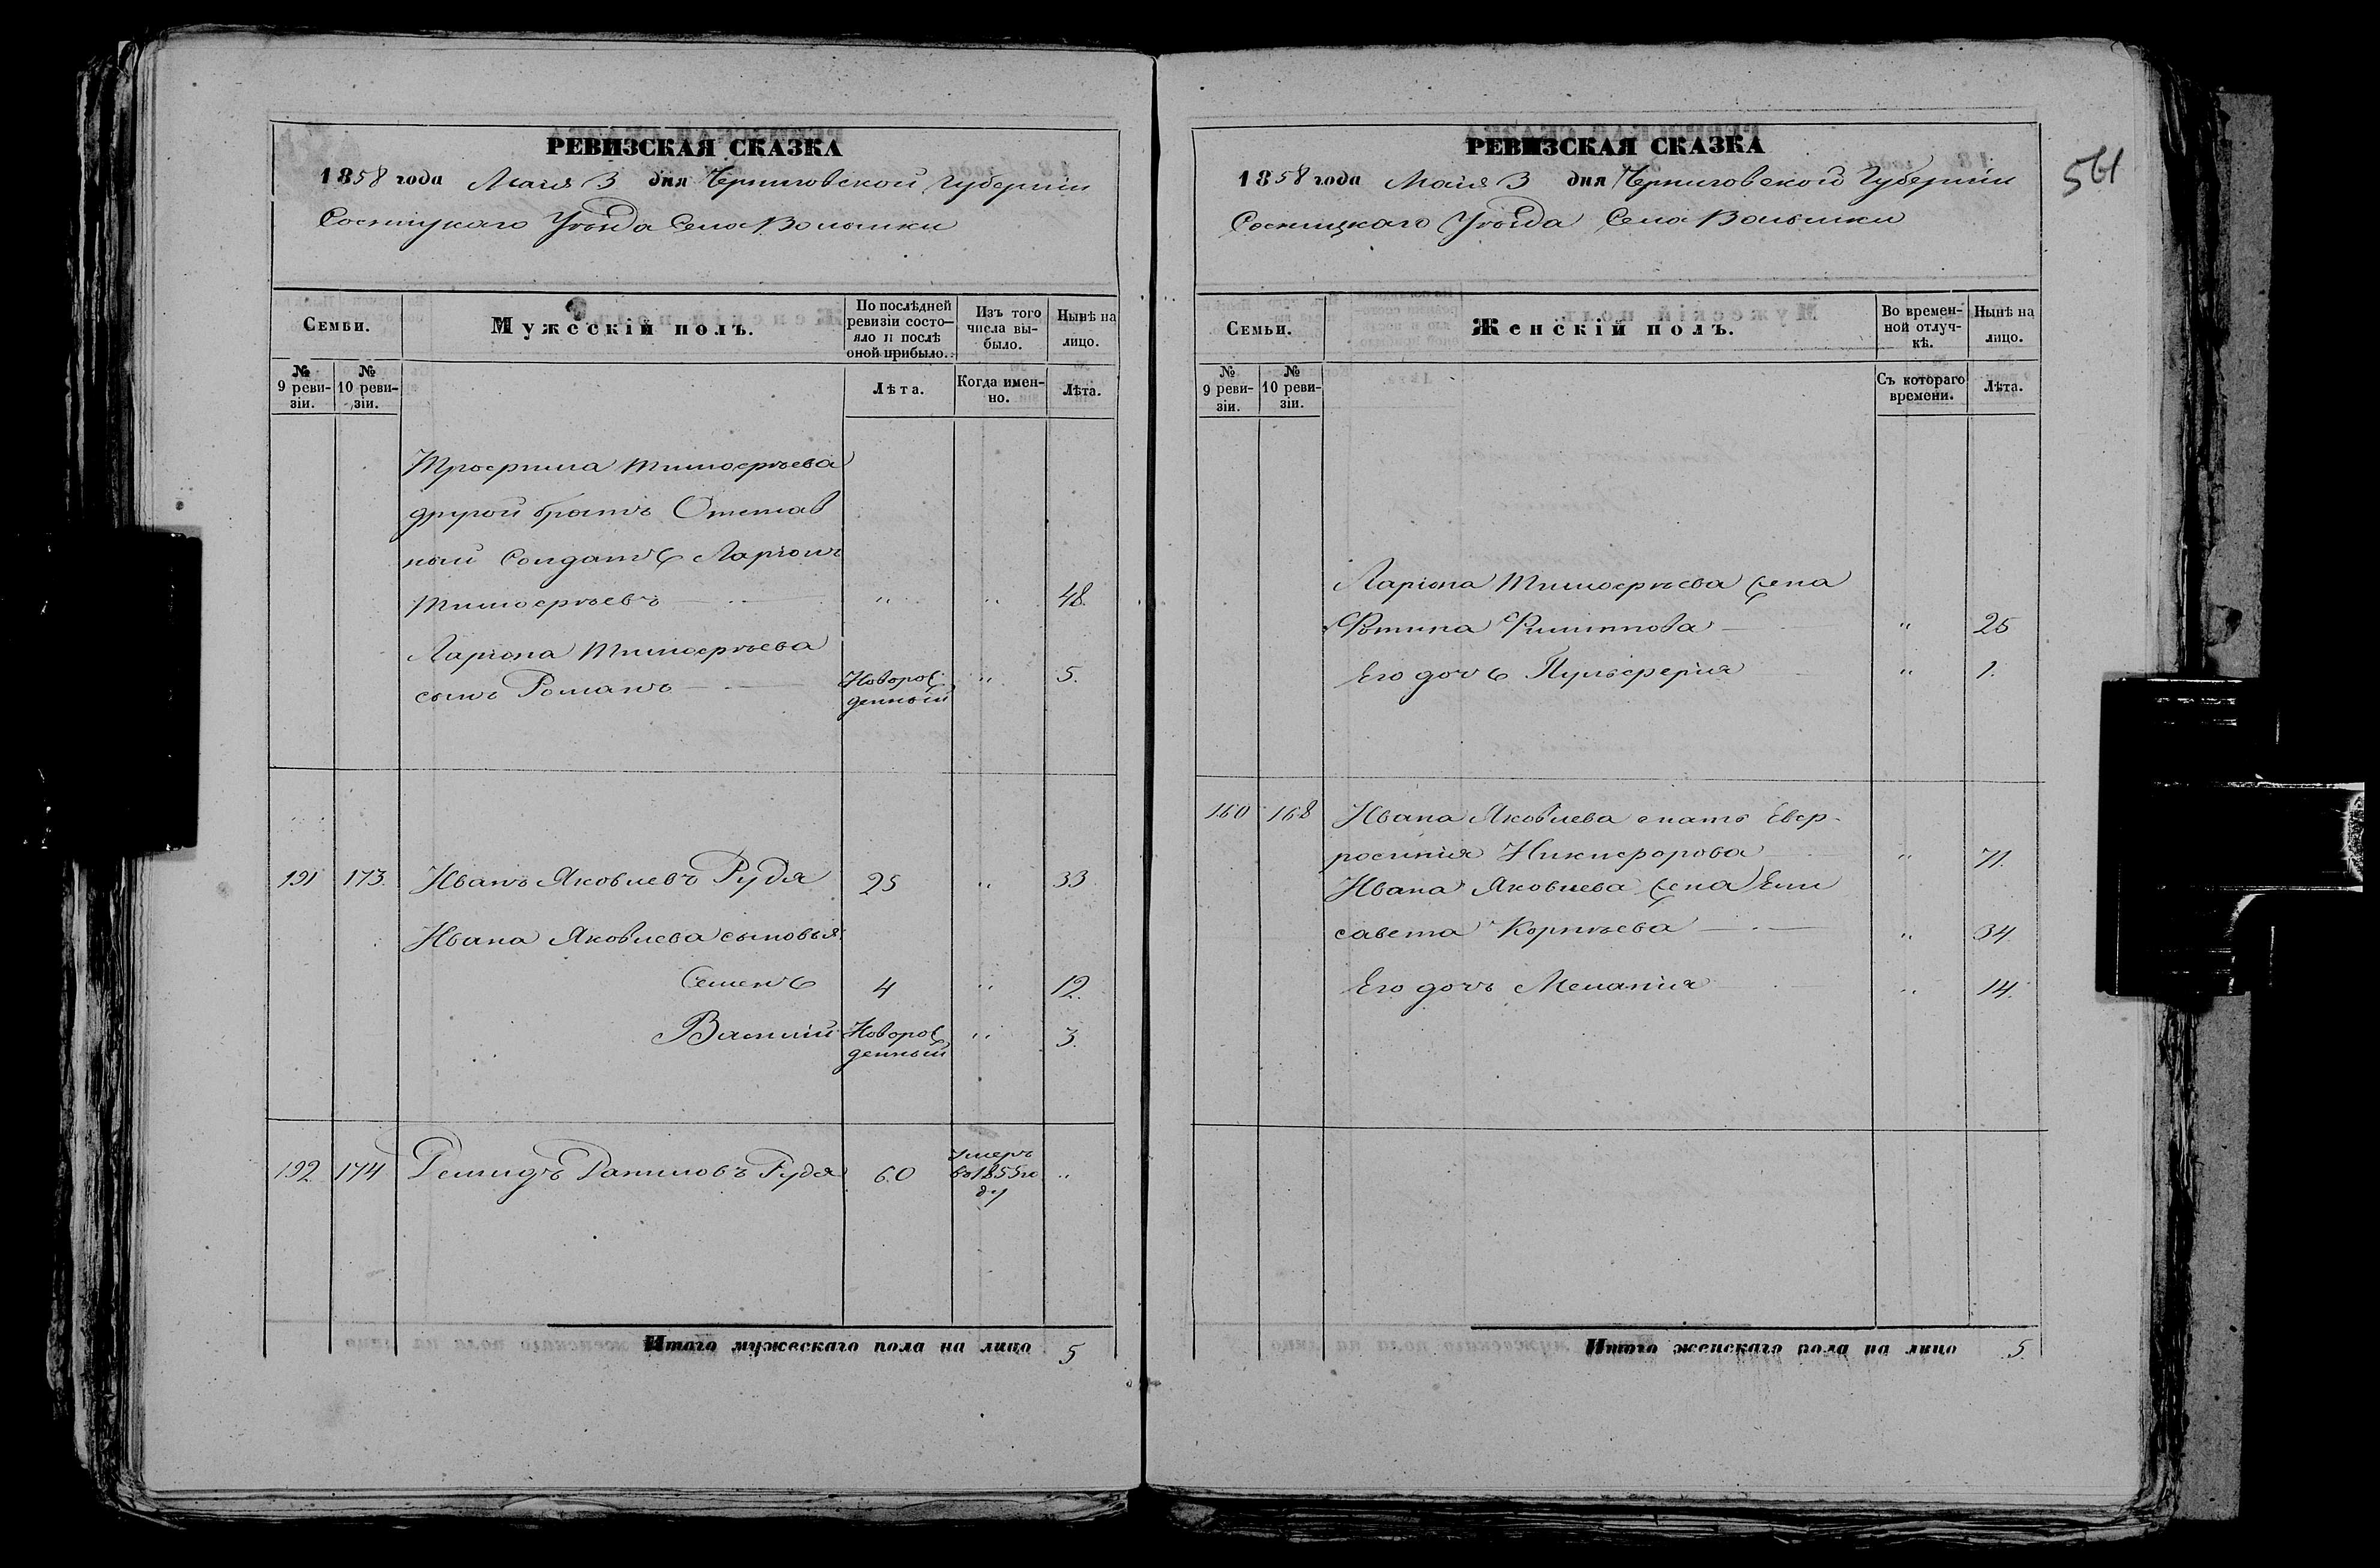 РЕВИЗСКАЯ СКАЗКА
1858 года Маия 3 дня Черниговской Губерніи
Сосницкаго Уѣзда Село Волынки
Семьи.
Мужескій полъ.
По послѣдней ревизіи состо-
яло и послѣ
оной прибыло.
Изъ того
числа вы-
было.
Нынѣ на
лицо.
№
9 реви-
зіи.
№
10 реви-
зіи.
Лѣта.
Когда имен-
но.
Лѣта.
Трофима Тимофѣева
другой братъ Отстав
ный Солдатъ Ларіонъ
Тимофѣевъ — " " 48.
Ларіона Тимофѣева
сынъ Романъ — Новорож
денный " 5.
191 173. Иванъ Яковлевъ Рудя 25 " 33
Ивана Яковлева сыновья
Семенъ 4 " 12.
Василій Новорож
денный " 3.
192 174 Демидъ Даниловъ Рудя 60 умеръ
въ 1855 го
ду "
Итого мужескаго пола на лицо 5
561
РЕВИЗСКАЯ СКАЗКА
1858 года Маия 3 дня Черниговской Губерніи
Сосницкаго Уѣзда Село Волынки
Семьи.
Женскій полъ.
Во времен-
ной отлуч-
кѣ.
Нынѣ на
лицо.
№
9 реви-
зіи.
№
10 реви-
зіи.
Съ котораго
времени.
Лѣта.
Ларіона Тимофѣева жена
Фотина Филиппова — " 25
Его дочь Пульферія " 1.
160 168 Ивана Яковлева мать Евф-
росинія Никифорова " 71.
Ивана Яковлева жена Ели
савета Корнѣева — " 34.
Его дочь Меланія " 14.
Итого женскаго пола на лицо 5.